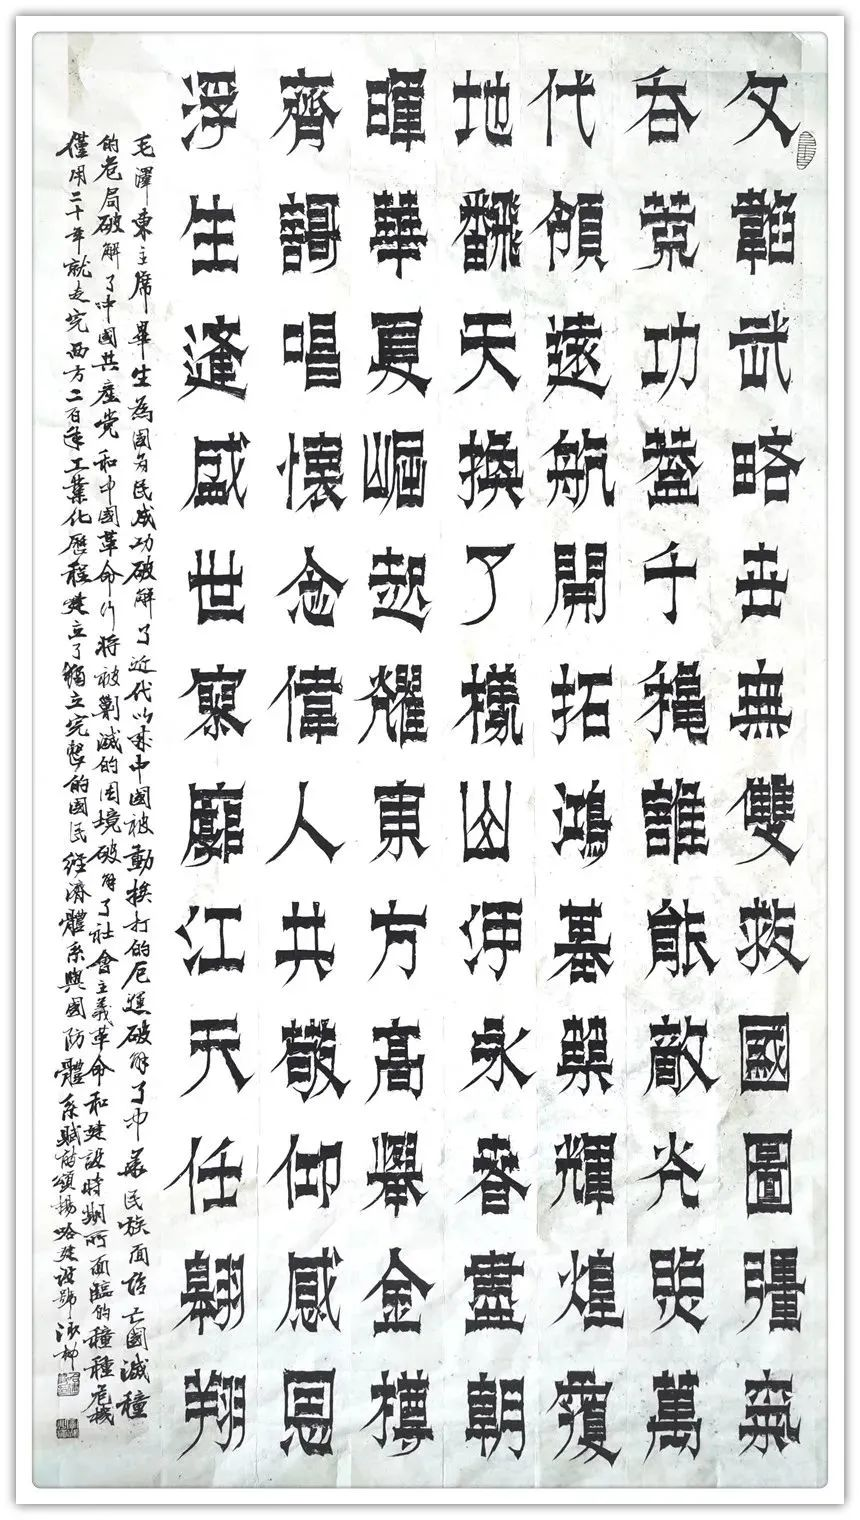 文韜武略世無雙救國圖疆氣
吞荒功蓋千龝誰能敵光照萬
代領遠航開拓鴻基奠輝煌覆
地飜天換了樣山河永春盡朝
暉華夏崛起耀東方高擧金樽
齊謌唱懷念偉人共敬仰感恩
浮生逢盛世寥廓江天任翱翔
毛澤東主席畢生為國為民成功破解了近代以來中國被動挨打的厄運破解了中華民族面臨亡國滅種
的危局破解了中國共產党和中國革命行將被剿滅的困境破解了社會主義革命和建設時期所面臨的種種危機
僅用二十年就走完西方二百年工業化歷程建立了獨立完整的國民經濟體系與國防體系賦詩頌揚